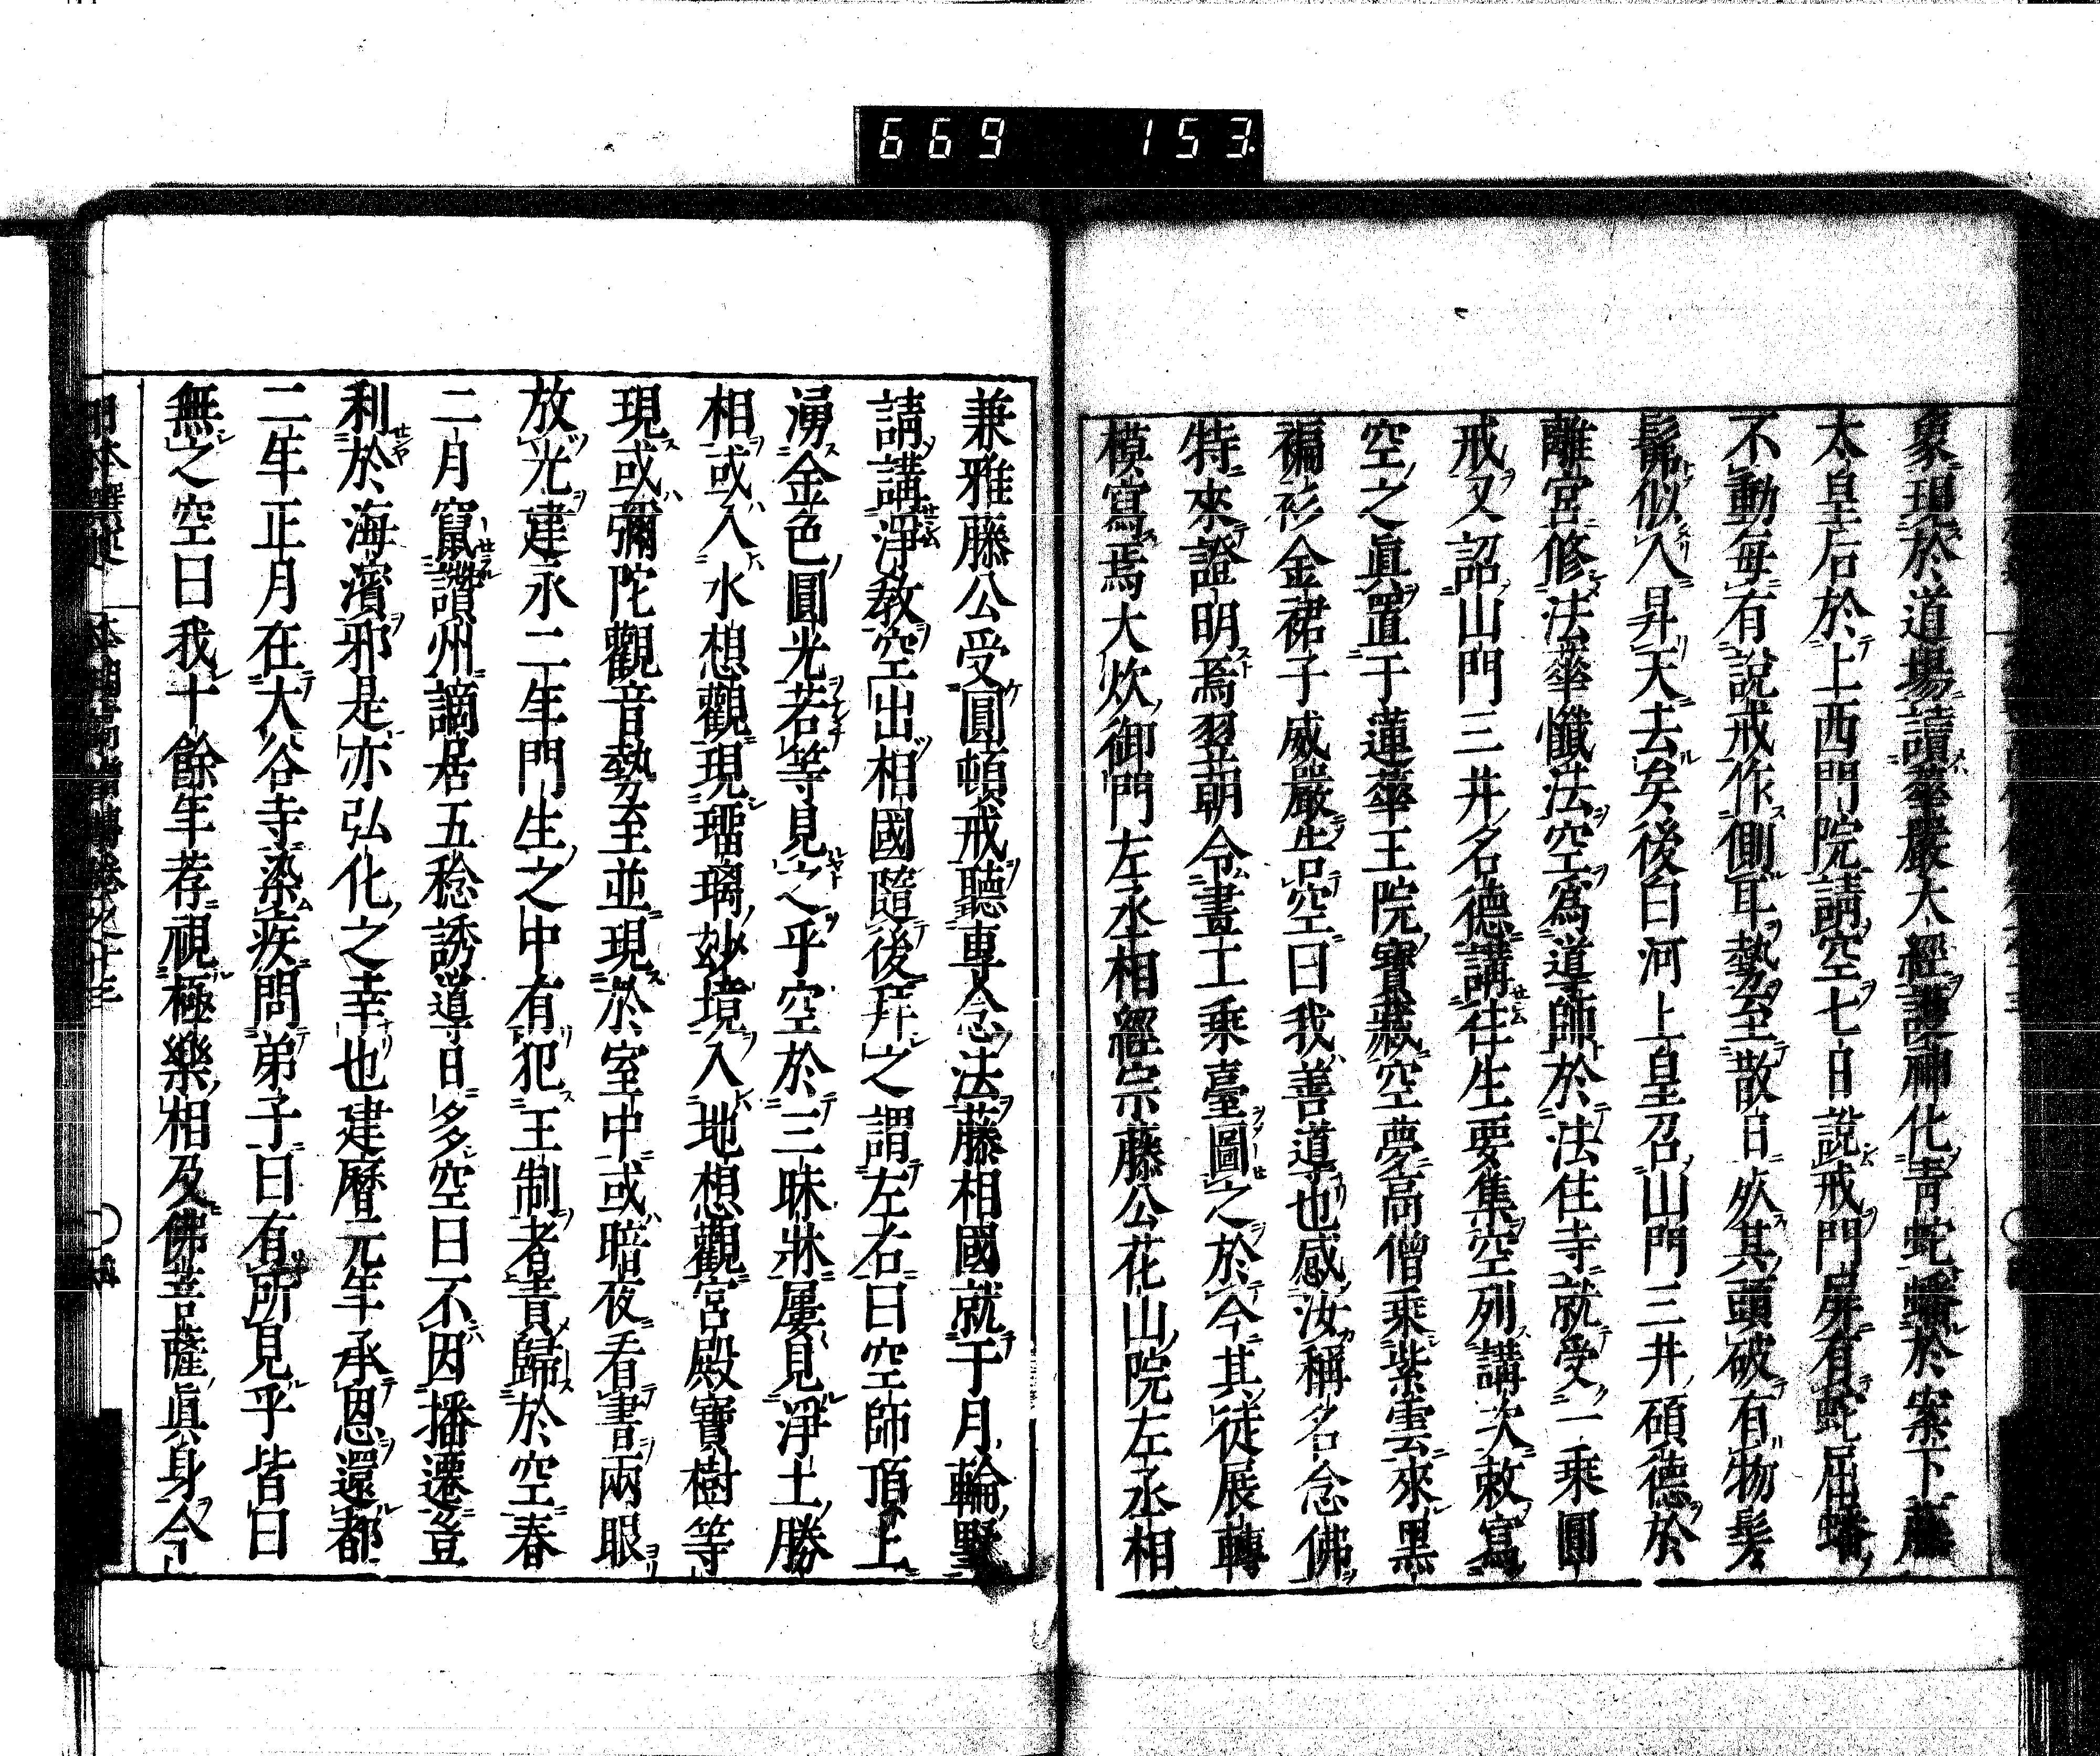 669 153.
象現於道場讀華嚴大經護神化青蛇蟠於案下藤
太皇后於上西門院請空七日說戒門屏有蛇屈蟠
不動每有說戒作側耳勢至散日於其頭破有物髣
髴似人昇天去矣後白河上皇召山門三井碩德於
離宮修法華懺法空為導師於法住寺就受一乘圓
戒又詔山門三井名德講往生要集空列講次敕寫
空之眞置于蓮華王院寶藏空夢高僧乘紫雲來黑
褊衫金裙子威嚴告空曰我善導也感汝稱名念佛
特來證明焉翌朝令畫工乘臺圖之於今其徒展轉
模寫焉大炊御門左丞相經宗藤公花山院左丞相
兼雅藤公受圓頓戒聽專念法藤相國就于月輪墅
請講淨教空出相國隨後拜之謂左右曰空師頂上
湧金色圓光若等見之乎空於三昧牀屢見淨土勝
相或入水想觀現瑠璃妙境入地想觀宮殿寶樹等
現或彌陀觀音勢至並現於室中或暗夜看書兩眼
放光建永二年門生之中有犯王制者責歸於空春
二月竄讚州謫居五稔誘導日多空曰不因播遷豈
利於海濱邪是亦弘化之幸也建曆元年承恩還都
二年正月在大谷寺染疾問弟子曰有所見乎皆曰
無之空曰我十餘年荐視極樂相及佛菩薩眞身今